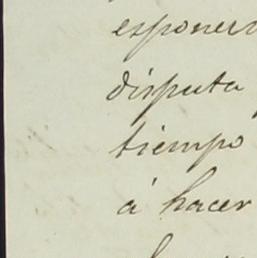 esponer
disputa
tiempo
á hacer